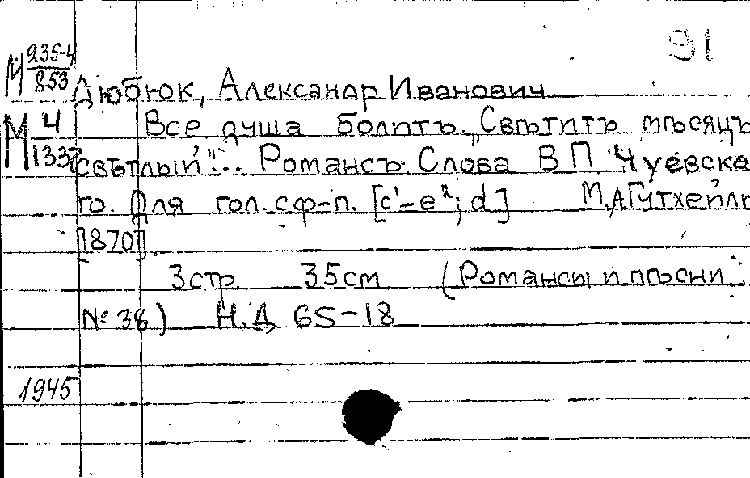 91
М 935-4/853
Дюбюк, Александр Иванович
М 4/1337
Все душа болитъ. „Свѣтитъ мѣсяцъ
свѣтлый"... Романсъ. Слова В П Чуевска-
го. Для гол. с ф-п. [c'-e²; d] М, А Гутхейль
[1870]
3 стр. 35 см (Романсы и пѣсни
№ 38) Н.Д. 65-18
1945